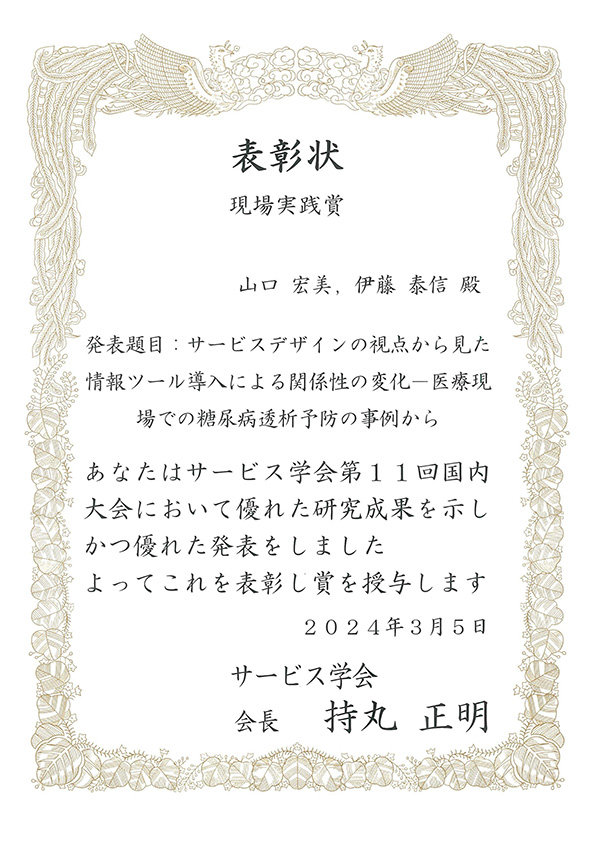 表彰状
現場実践賞
山口 宏美, 伊藤 泰信 殿
発表題目：サービスデザインの視点から見た
情報ツール導入による関係性の変化－医療現
場での糖尿病透析予防の事例から
あなたはサービス学会第１１回国内
大会において優れた研究成果を示し
かつ優れた発表をしました
よってこれを表彰し賞を授与します
２０２４年３月５日
サービス学会
会長 持丸 正明